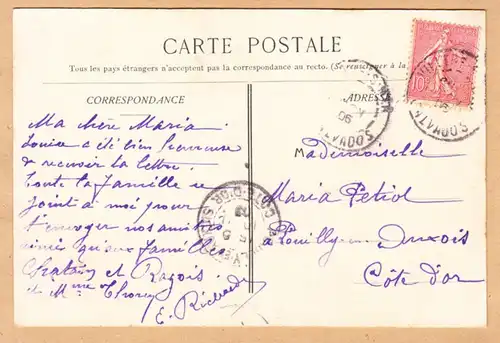 CARTE POSTALE
Tous les pays étrangers n'acceptent pas la correspondance au recto. (Se renseigner à la
CORRESPONDANCE
ADRES
Ma chère Maria
Louise a été bien heureuse
de recevoir la lettre.
Toute la famille se
joint à moi pour
t'envoyer nos amitiés
ainsi qu'aux familles
Chatoin et Ragois
et Mme Thorey
E. Richard
Mademoiselle
Maria Petiot
à Pouilly en Auxois
Côte d'or